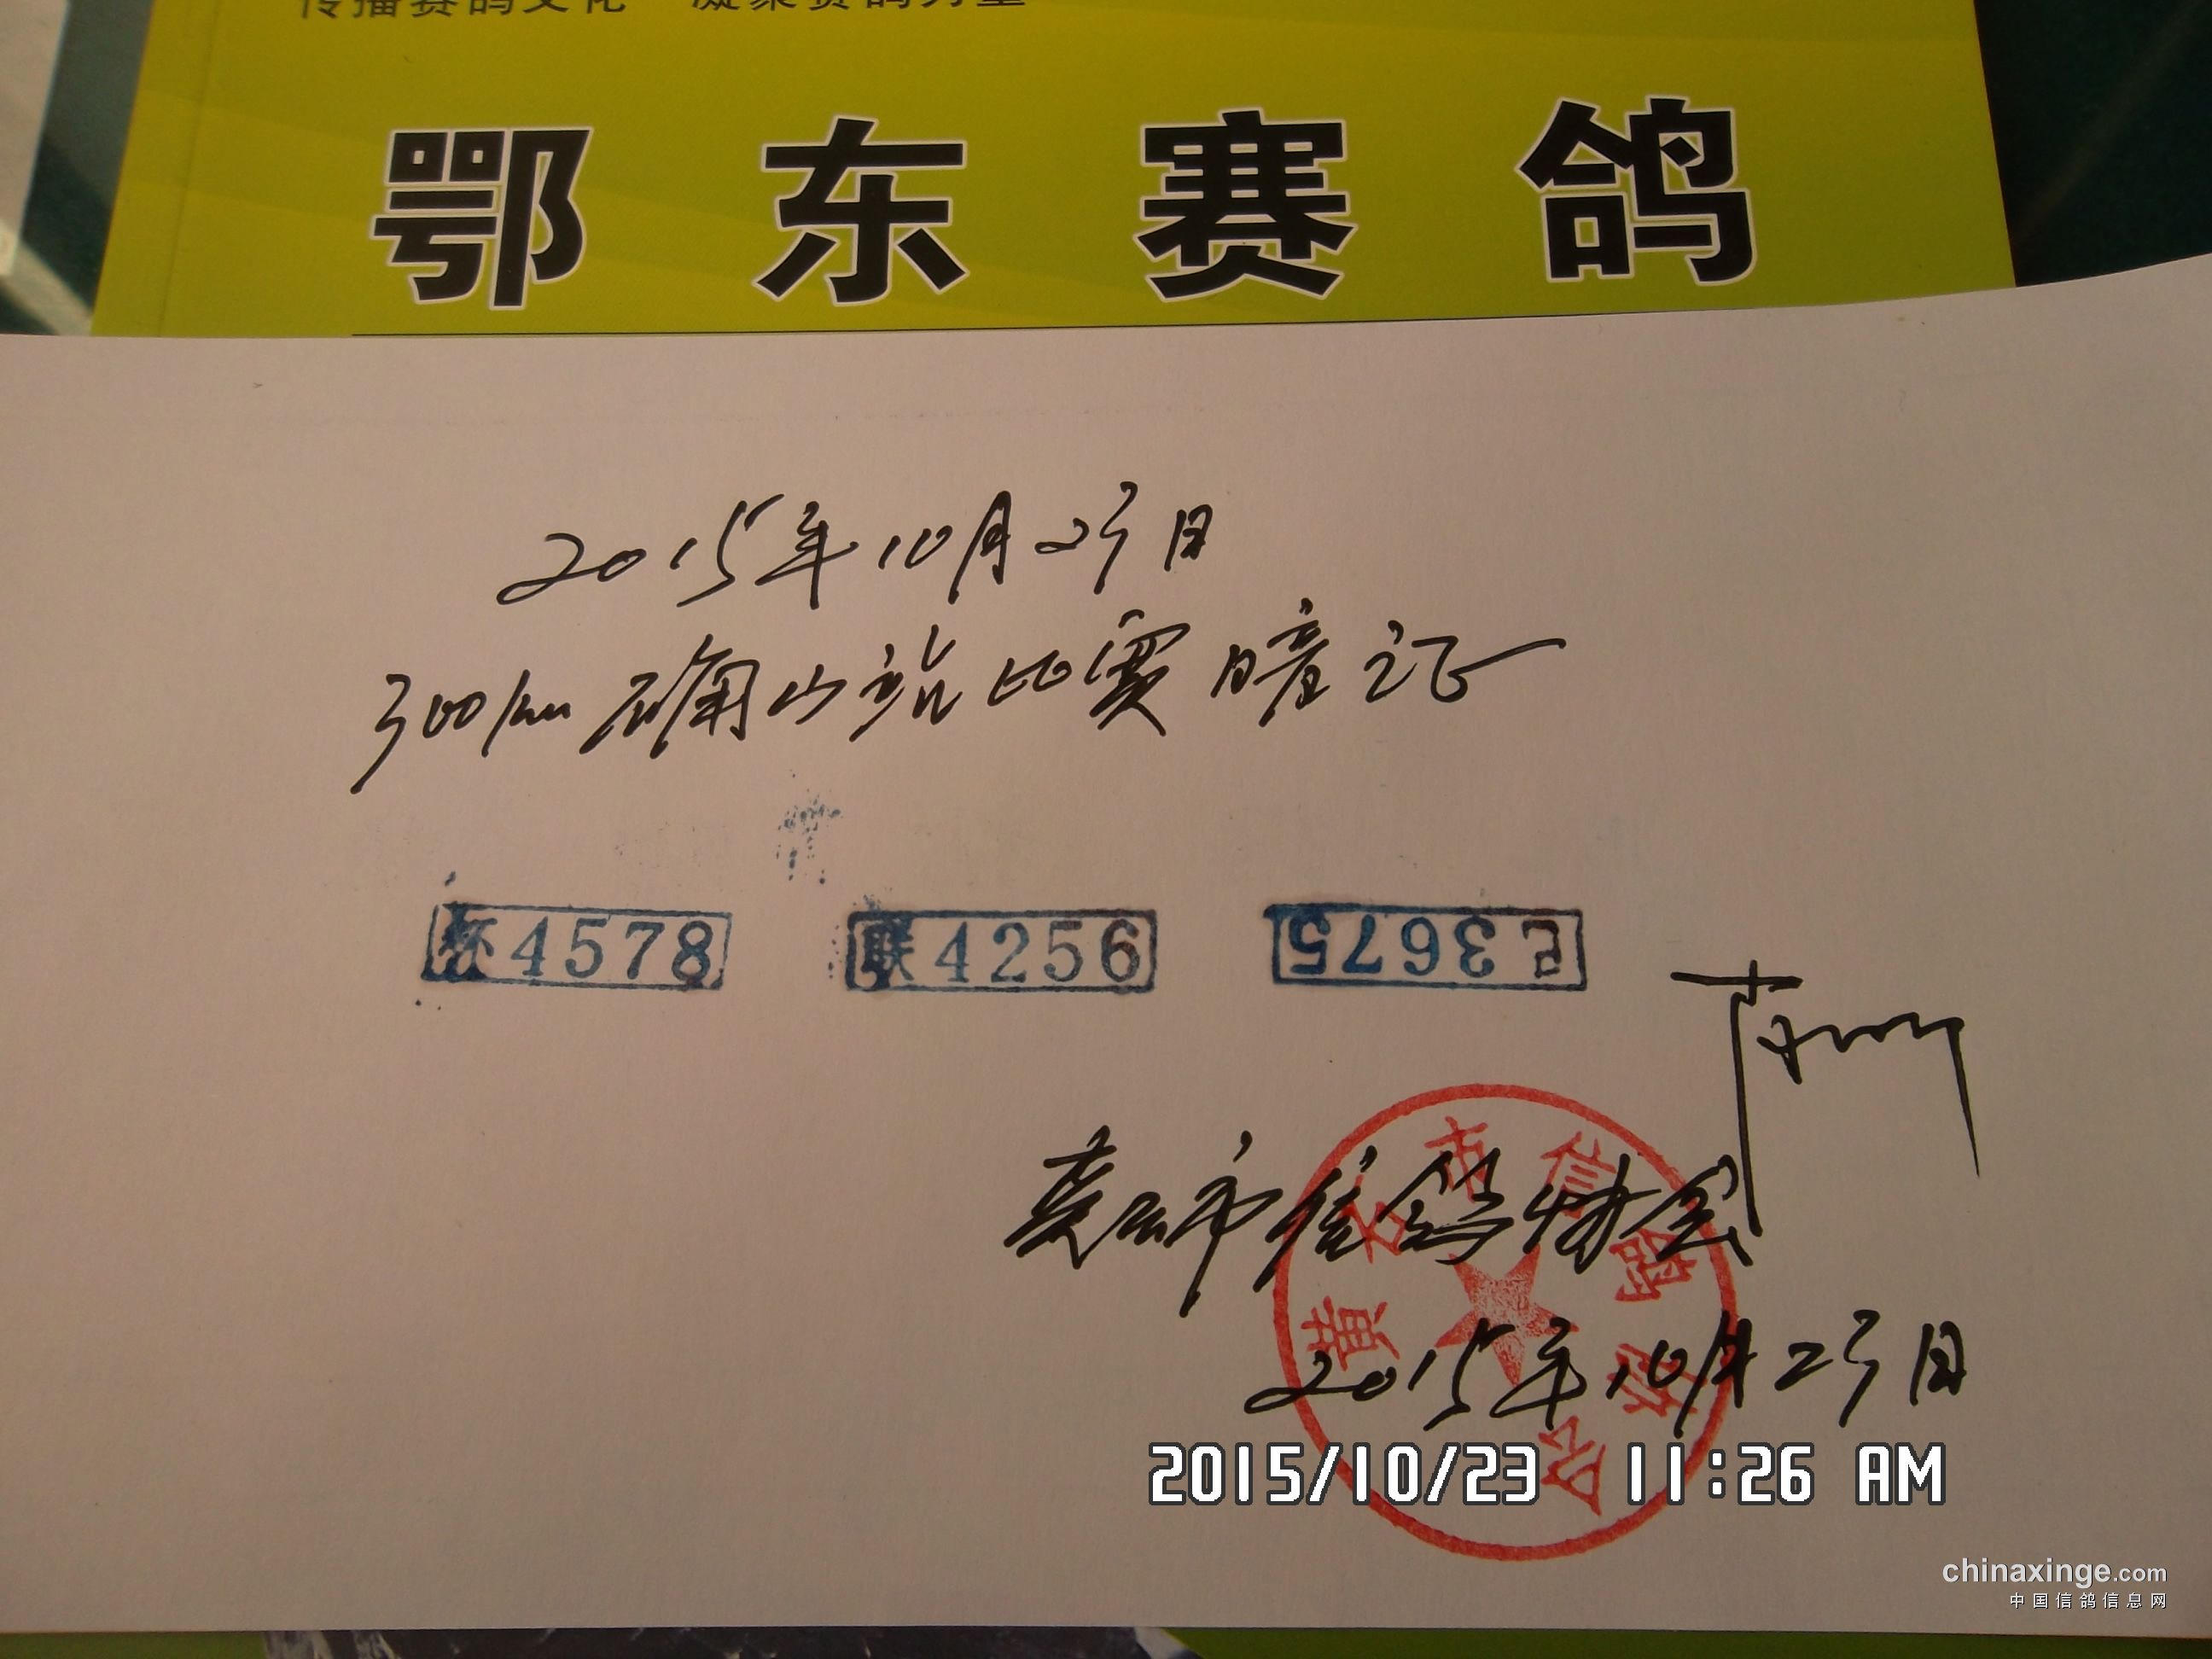 传播赛鸽文化 凝聚赛鸽力量
鄂东赛鸽
2015年10月23日
300km确山站比赛暗证
环4578
联4256
巳3675
黄石市信鸽协会
黄石市信鸽协会
2015年10月23日
2015/10/23 11:26 AM
chinaxinge.com
中国信鸽信息网